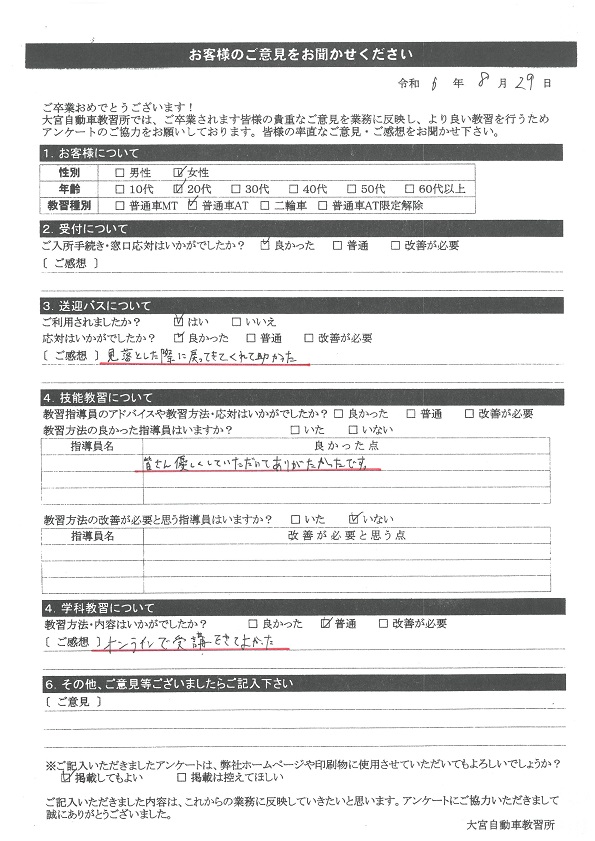 お客様のご意見をお聞かせください
令和 6 年 8 月 29 日
ご卒業おめでとうございます！
大宮自動車教習所では、ご卒業されます皆様の貴重なご意見を業務に反映し、より良い教習を行うため
アンケートのご協力をお願いしております。皆様の率直なご意見・ご感想をお聞かせ下さい。
1. お客様について
性別 □ 男性 ☑ 女性
年齢 □ 10代 ☑ 20代 □ 30代 □ 40代 □ 50代 □ 60代以上
教習種別 □ 普通車MT ☑ 普通車AT □ 二輪車 □ 普通車AT限定解除
2. 受付について
ご入所手続き・窓口応対はいかがでしたか？ ☑ 良かった □ 普通 □ 改善が必要
[ ご感想 ]
3. 送迎バスについて
ご利用されましたか？ ☑ はい □ いいえ
応対はいかがでしたか？ ☑ 良かった □ 普通 □ 改善が必要
[ ご感想 ] 見落とした際に戻ってきてくれて助かった
4. 技能教習について
教習指導員のアドバイスや教習方法・応対はいかがでしたか？ □ 良かった □ 普通 □ 改善が必要
教習方法の良かった指導員はいますか？ □ いた □ いない
指導員名 良かった点
皆さん優しくしていただいてありがたかったです。
教習方法の改善が必要と思う指導員はいますか？ □ いた ☑ いない
指導員名 改善が必要と思う点
4. 学科教習について
教習方法・内容はいかがでしたか？ □ 良かった ☑ 普通 □ 改善が必要
[ ご感想 ] オンラインで受講できてよかった
6. その他、ご意見等ございましたらご記入下さい
[ ご意見 ]
※ご記入いただきましたアンケートは、弊社ホームページや印刷物に使用させていただいてもよろしいでしょうか？
☑ 掲載してもよい □ 掲載は控えてほしい
ご記入いただきました内容は、これからの業務に反映していきたいと思います。アンケートにご協力いただきまして
誠にありがとうございました。
大宮自動車教習所